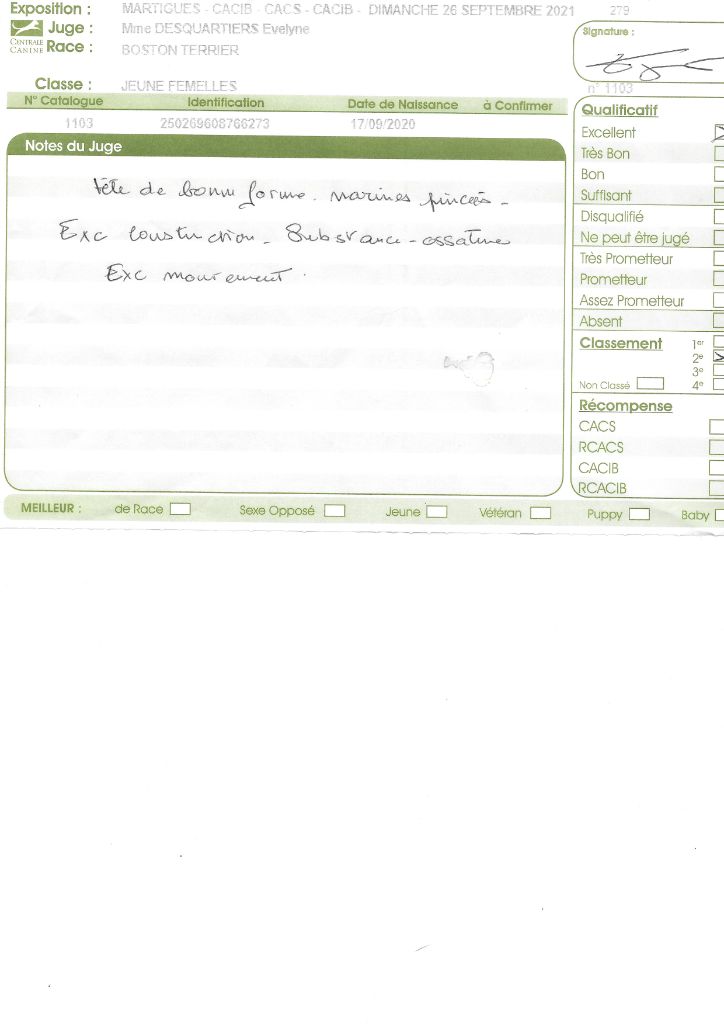 Exposition : MARTIGUES - CACIB - CACS - CACIB - DIMANCHE 26 SEPTEMBRE 2021 279
Juge : Mme DESQUARTIERS Evelyne
CENTRALE CANINE
Race : BOSTON TERRIER
Signature :
Classe : JEUNE FEMELLES
n° 1103
N° Catalogue Identification Date de Naissance à Confirmer
1103 250269608766273 17/09/2020
Notes du Juge
tête de bonne forme. narines pincées -
Exc construction - Substance - ossature
Exc mouvement.
Qualificatif
Excellent
Très Bon
Bon
Suffisant
Disqualifié
Ne peut être jugé
Très Prometteur
Prometteur
Assez Prometteur
Absent
Classement 1er
2e
3e
Non Classé 4e
Récompense
CACS
RCACS
CACIB
RCACIB
MEILLEUR : de Race Sexe Opposé Jeune Vétéran Puppy Baby